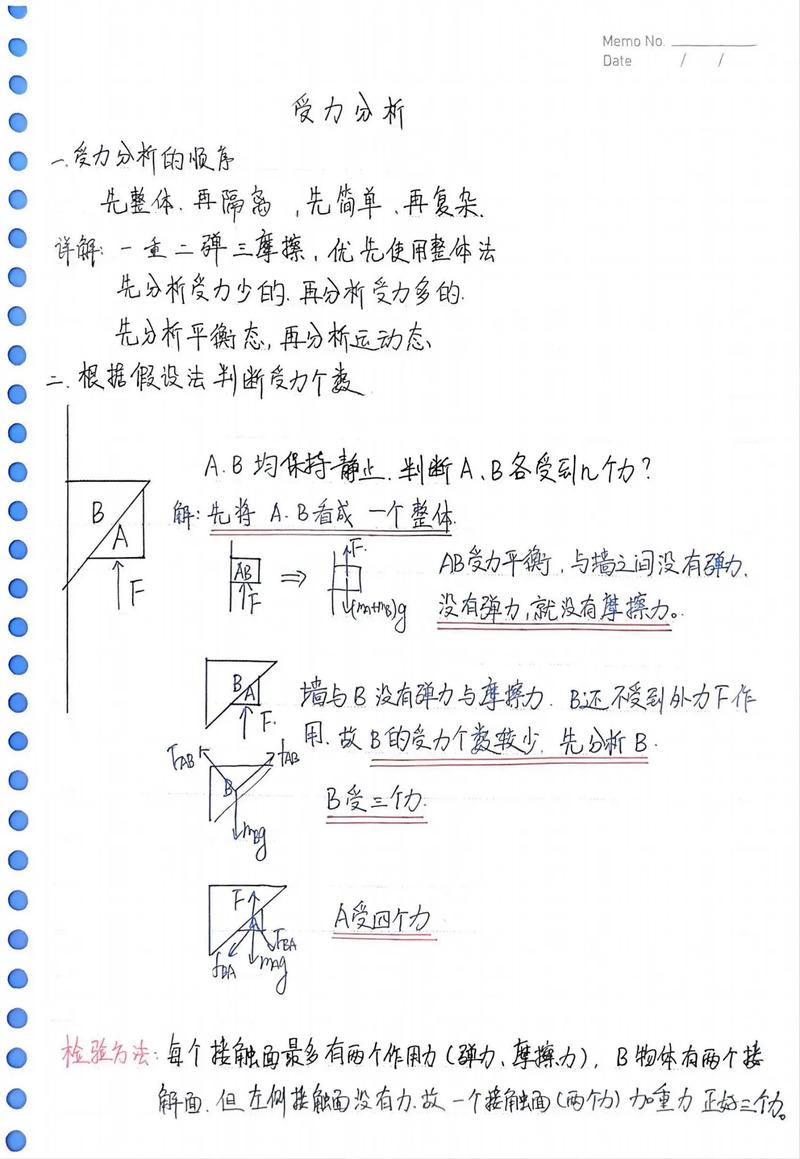 Memo No.
Date / /
受力分析
一.受力分析的顺序
先整体.再隔离,先简单、再复杂.
详解:一重二弹三摩擦,优先使用整体法
先分析受力少的.再分析受力多的.
先分析平衡态,再分析运动态、
二.根据假设法判断受力个数
A.B均保持静止.判断A、B各受到几个力?
B
A
F
解:先将A.B看成一个整体.
AB
F
⇒
F.
(mA+mB)g
AB受力平衡,与墙之间没有弹力.
没有弹力,就没有摩擦力。
B A
F.
墙与B没有弹力与摩擦力.B还不受到外力F作
用.故B的受力个数较少.先分析B.
FAB
fAB
B
mBg
B受三个力.
F
A
fBA
mAg
FBA
A受四个力
检验方法:每个接触面最多有两个作用力(弹力、摩擦力),B物体有两个接
解面.但左侧接触面没有力.故一个接触面(两个力)加重力正好三个力。